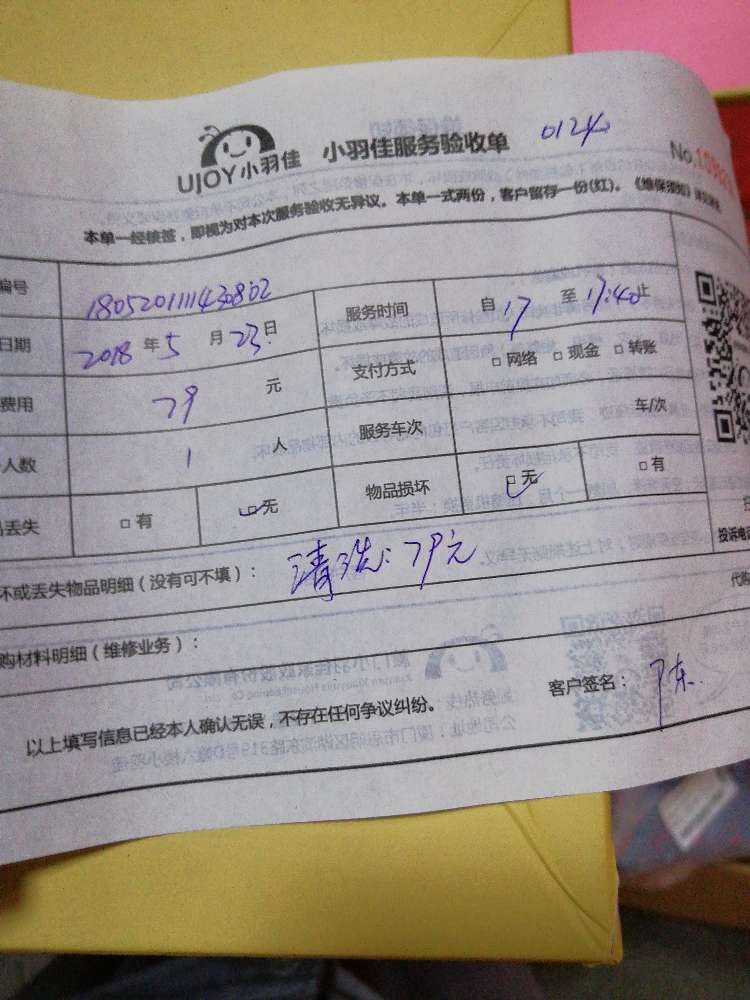 UJOY小羽佳 小羽佳服务验收单 0124
No.
本单一经核签，即视为对本次服务验收无异议。本单一式两份，客户留存一份(红)。《维保须知》
编号 180520111430802 服务时间 自17至17:40止
日期 2018年5月23日 支付方式 □网络 □现金 □转账
费用 79元 服务车次 车/次
人数 1人 物品损坏 □无 □有
丢失 □有 □无
坏或丢失物品明细（没有可不填）： 清洗:79元
投诉电话
代购
购材料明细（维修业务）：
以上填写信息已经本人确认无误，不存在任何争议纠纷。 客户签名：